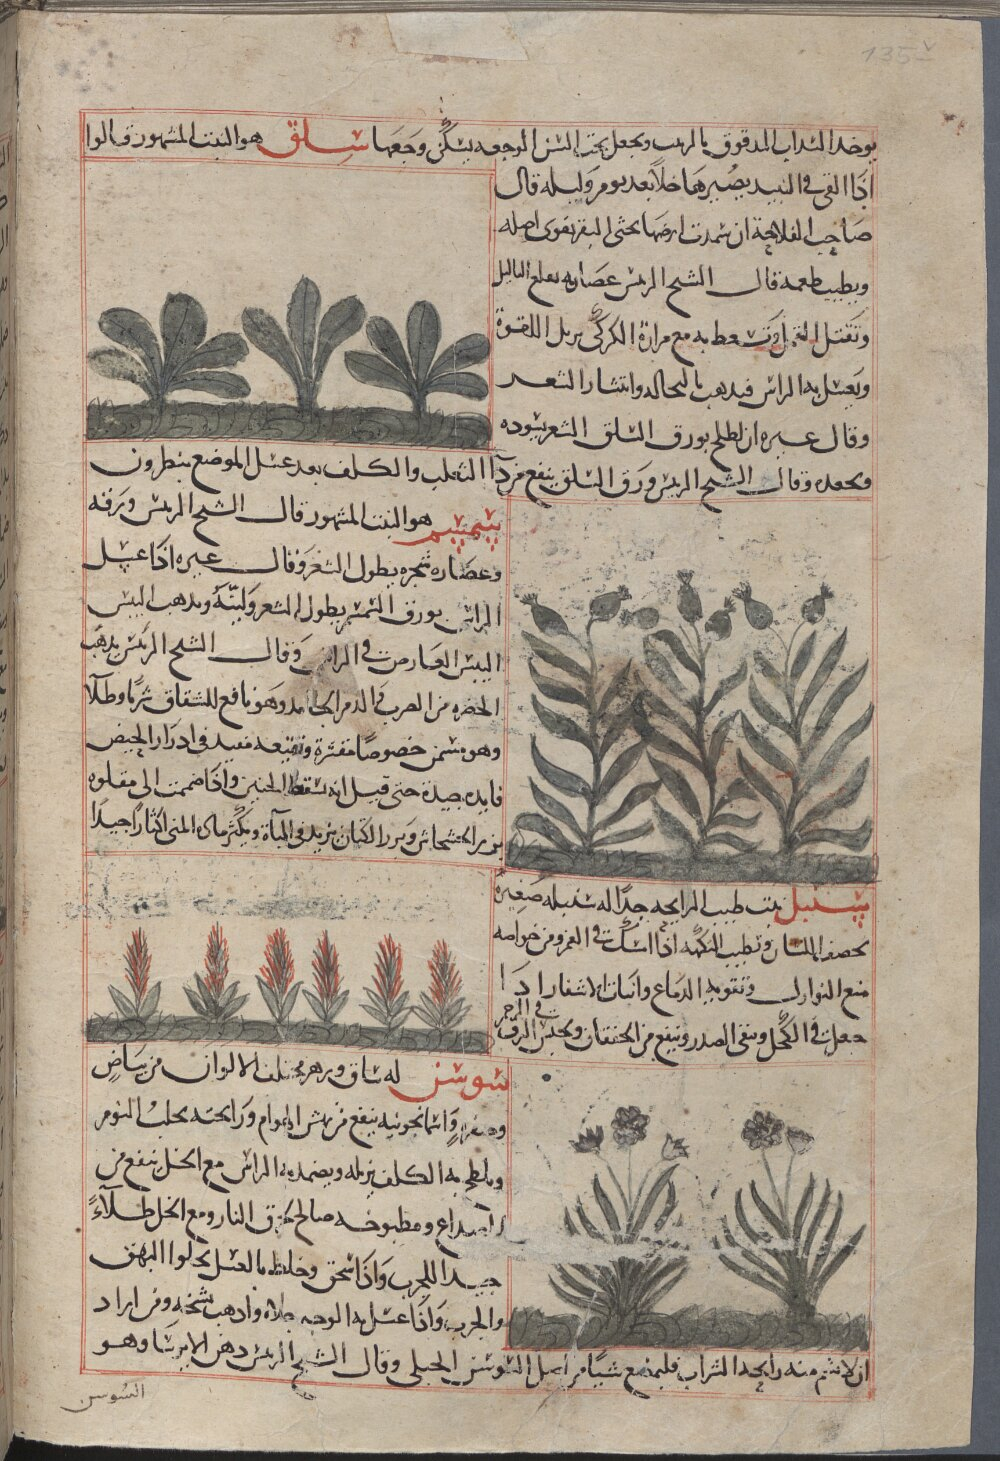 135v
يوخذ السداب المدقوق بالزيت ويجعل تحت السن الموجعه يسكن وجعها سلق هو النبت المشهور قالوا
اذا القى فى النبيد يصيرها خلا بعد يوم وليله قال
صاحب الفلاحة ان سمدت ارضها بحثى البقر يقوى اصله
ويطيب طعمه قال الشيخ الريس عصارته تقلع الثاليل
وتقتل القمل وتسعط به مع مرارة الكركى يزيل اللقوة
ويغسل به الراس فيذهب بالنخاله وانتشار الشعر
وقال غيره ان لطلح بورق السلق الشعر يسوده
ويجعده وقال الشيخ الريس ورق السلق ينفع من دآ الثعلب والكلف بعد غسل الموضع بنطرون
سمسم هو النبت المشهور قال الشيخ الريس ورقه
وعصاره شجره يطول الشعر وقال غيره اذا غسل
الراس بورق السمسم يطول الشعر ولينه ويذهب اليبس
اليبس العارض فى الراس وقال الشيخ الريس يذهب
الخضره من الضرب والدم الجامد وهو نافع للشقاق شربا وطلآ
وهو مسمن خصوصا مقشرة ونقيعه مفيد فى ادرار الحيض
فايده جيدة حتى قيل انه يسقط الجنين واذا ضممت الى مقلوه
بزر الخشخاش وبزر الكتان يزيد فى الباة ويكثر ماده المنى اكثارا جيدا
سنبل نبت طيب الرايحه جدا له سنبله صغيرة
يخصف اللسان ويطيب النكهه اذا امسك فى الفم ومن خواصه
منع النوازل وتقويه الدماغ وانبات الاشفار اذا
جعلت فى الكحل وينقى الصدر وينفع من الخفقان ويحبس النزف فى الرحم
سوسن له ساق وزهر مختلف الالوان من بياض
وصفرة واسمانجونيه ينفع من نهش الهوام ورايحته يجلب النوم
ويلطخ به الكلف يزيله ويضمد به الراس مع الخل ينفع من
الصداع ومطبوخه صالح لحرق النار ومع الخل طلآء
جيد اللجرب واذا سحق وخلط بالعسل يجلوا البهق
والجرب واذا غسل به الوجه جلاه واذهب تشنجه ومن اراد
ان لا يشم منه رايحه الشراب فليمضغ شيا من اصل السوسن الجبلى وقال الشيخ الريس دهن الايرسا وهو
السوسن